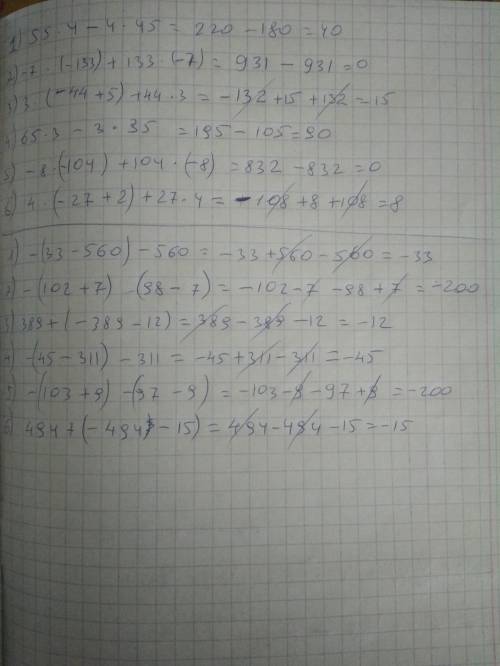 1) 55 · 4 - 4 · 45 = 220 - 180 = 40
2) -7 · (-133) + 133 · (-7) = 931 - 931 = 0
3) 3 · (-44 + 5) + 44 · 3 = -132 + 15 + 132 = 15
4) 65 · 3 - 3 · 35 = 195 - 105 = 90
5) -8 · (-104) + 104 · (-8) = 832 - 832 = 0
6) 4 · (-27 + 2) + 27 · 4 = -108 + 8 + 108 = 8
1) -(33 - 560) - 560 = -33 + 560 - 560 = -33
2) -(102 + 7) - (98 - 7) = -102 - 7 - 98 + 7 = -200
3) 389 + (-389 - 12) = 389 - 389 - 12 = -12
4) -(45 - 311) - 311 = -45 + 311 - 311 = -45
5) -(103 + 9) - (97 - 9) = -103 - 9 - 97 + 9 = -200
6) 494 + (-494 - 15) = 494 - 494 - 15 = -15